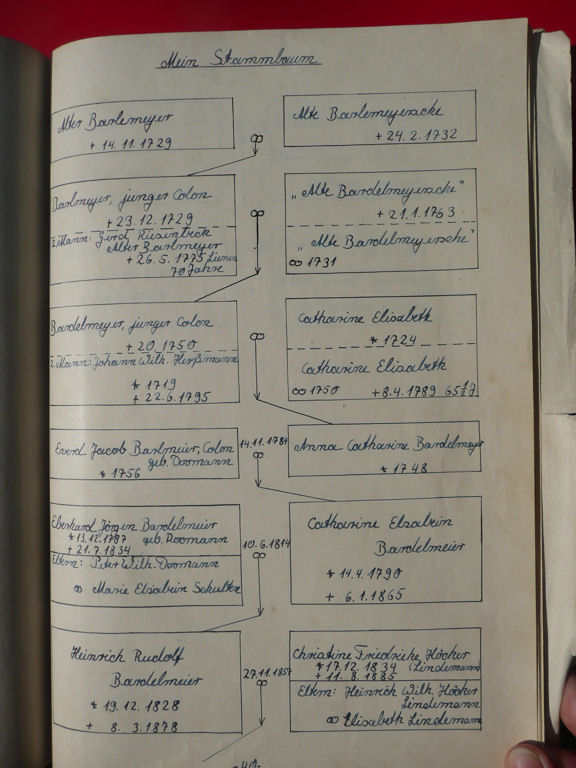 Mein Stammbaum
Alter Barlemeyer
+ 14.11.1729
∞
Alte Barlemeyersche
+ 24.2.1732
Barlmeyer, junger Colon
+ 23.12.1729
2. Mann: Gerd Riesinbeck
Alter Barlmeyer
+ 26.5.1775
70 Jahre
∞
„Alte Bardelmeyersche"
+ 21.1.1763
„Alte Bardelmeyersche"
∞ 1731
Bardelmeyer, junger Colon
+ 20. 1750
2. Mann: Johann Wilh.
* 1719
+ 22.6.1795
∞
Catharine Elisabeth
* 1724
Catharine Elisabeth
∞ 1750 + 8.4.1789
Everd Jacob Barlmeier, Colon
geb. Doomann
* 1756
14.11.1784
∞
Anna Catharine Bardelmeyer
* 1748
Eberhard Jörgen Bardelmeier
* 13.12.1787 geb. Doomann
+ 21.7.1834
Eltern: Peter Wilh. Doomann
∞ Marie Elsabein Schulten
10.6.1814
∞
Catharine Elsabein
Bardelmeier
* 14.4.1790
+ 6.1.1865
Heinrich Rudolf
Bardelmeier
* 19.12.1828
+ 8. 3.1878
27.11.1857
∞
Christine Friedrike Höcker
* 17.12.1834 (Lindemann)
+ 11. 8. 1885
Eltern: Heinrich Wilh. Höcker
Lindemann
∞ Elisabeth Lindemann
-40-